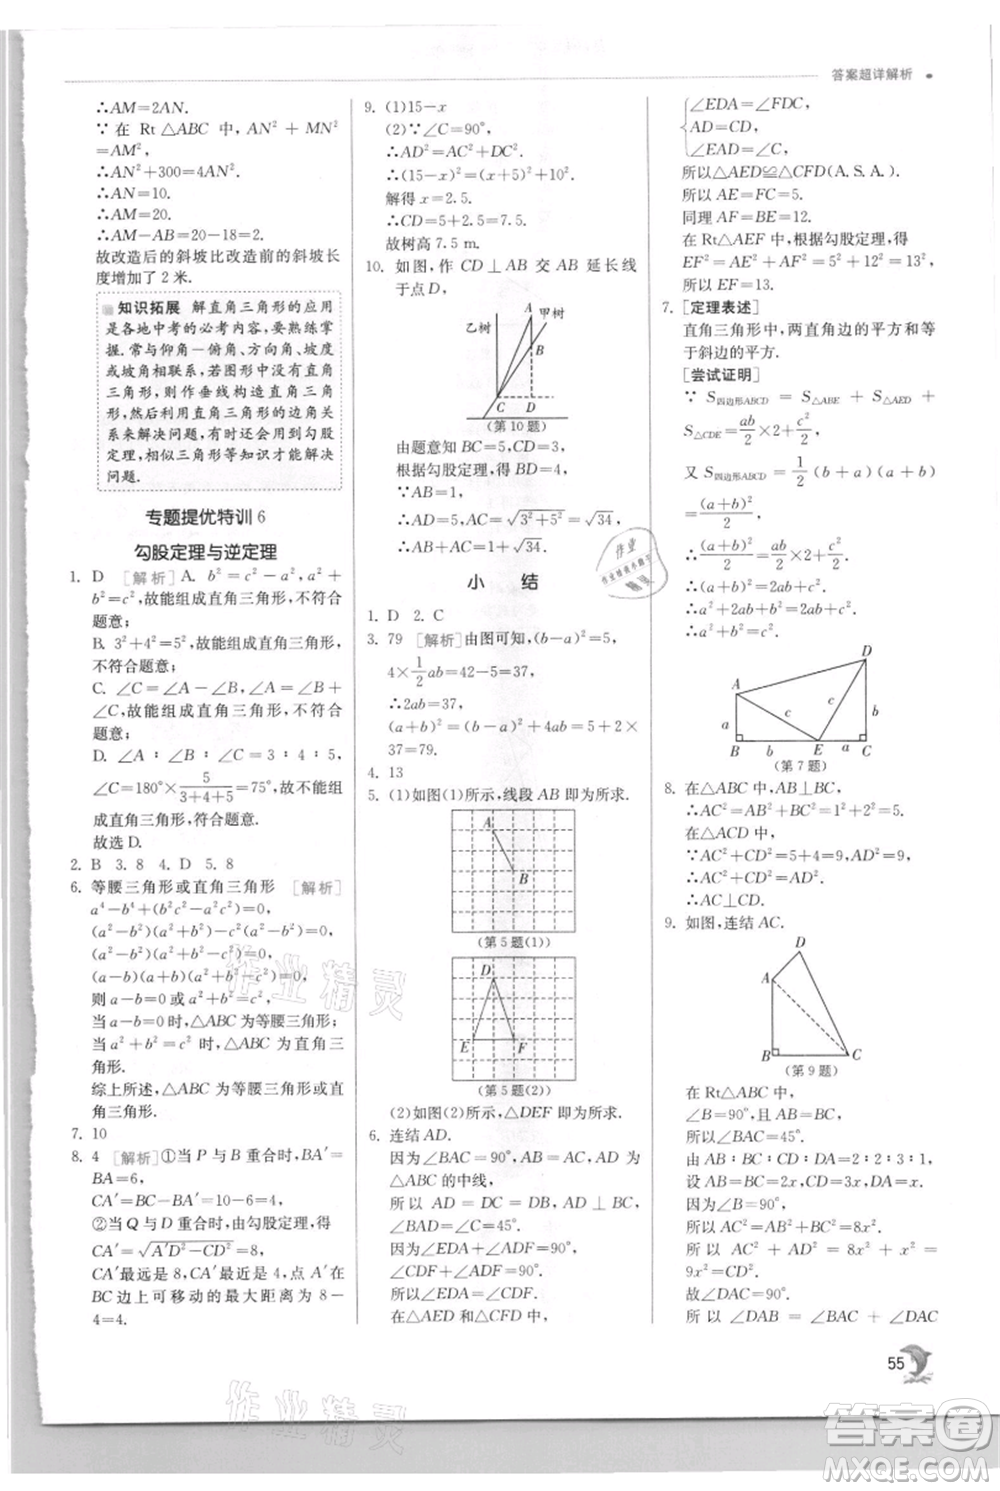 答案超详解析
∴AM=2AN.
∵在 Rt△ABC 中, AN²+MN²
=AM²,
∴AN²+300=4AN².
∴AN=10.
∴AM=20.
∴AM-AB=20-18=2.
故改造后的斜坡比改造前的斜坡长
度增加了 2 米.
知识拓展 解直角三角形的应用
是各地中考的必考内容,要熟练掌
握.常与仰角一俯角、方向角、坡度
坡角相联系,若图形中没有直角三
角形,则作垂线构造直角三角
形,然后利用直角三角形的边角关
系来解决问题,有时还会用勾股
定理,相似三角形等知识才能解决
问题.
专题提优特训 6
勾股定理与逆定理
1. D [解析] A. b²=c²-a²,a²+
b²=c²,故能组成直角三角形,不符合
题意;
B. 3²+4²=5²,故能组成直角三角形,
不符合题意;
C. ∠C=∠A-∠B,∠A=∠B+
∠C,故能组成直角三角形,不符合
题意;
D. ∠A:∠B:∠C=3:4:5,
∠C=180°×5/(3+4+5)=75°,故不能组
成直角三角形,符合题意.
故选 D.
2. B 3. 8 4. D 5. 8
6. 等腰三角形或直角三角形 [解析]
a⁴-b⁴+(b²c²-a²c²)=0,
(a²-b²)(a²+b²-c²)=0,
(a+b)(a-b)(a²+b²-c²)=0,
则 a-b=0 或 a²+b²-c²=0,
当 a-b=0 时,△ABC 为等腰三角形;
当 a²+b²-c²=0 时,△ABC 为直角三
角形.
综上所述,△ABC 为等腰三角形或
直角三角形.
7. 10
8. 4 [解析]①当 P 与 B 重合时,BA′=
BA=6,
CA′=BC-BA′=10-6=4,
②当 Q 与 D 重合时,由勾股定理,得
CA′=√(A′D²-CD²)=8,
CA′最远是 8,CA′最近是 4,点 A′在
BC 边上可移动的最大距离为 8-
4=4.
9. (1)15-x
(2)∵∠C=90°,
∴AD²=AC²+DC².
∴(15-x)²=(x+5)²+10².
解得 x=2.5.
∴CD=5+2.5=7.5.
故树高 7.5 m.
10. 如图,作 CD⊥AB 交 AB 延长线
于点 D,
乙树
A
甲树
B
C
D
(第 10 题)
由题意知 BC=5,CD=3,
根据勾股定理,得 BD=4.
∵AB=1,
∴AC=√(3²+5²)=√34,
∴AB+AC=1+√34.
小 结
1. D 2. C
3. 79 [解析]由图可知,(b-a)²=5,
4×1/2ab=42-5=37,
∴2ab=37,
(a+b)²=(b-a)²+4ab=5+2×
37=79.
4. 13
5. (1)如图(1)所示,线段 AB 即为所求.
A
B
(第 5 题(1))
D
E
F
(第 5 题(2))
(2)如图(2)所示,△DEF 即为所求.
6. 连结 AD.
因为∠BAC=90°,AB=AC,AD 为
△ABC 的中线,
所以 AD=DC=DB,AD⊥BC,
∠BAD=∠C=45°.
因为∠EDA+∠ADF=90°,
∠CDF+∠ADF=90°,
所以∠EDA=∠CDF.
在△AED 和△CFD 中,
∠EDA=∠FDC,
AD=CD,
∠EAD=∠C,
所以△AED≌△CFD(A. S. A.).
所以 AE=FC=5.
同理 AF=BE=12.
在 Rt△AEF 中,根据勾股定理,得
EF²=AE²+AF²=5²+12²=13²,
所以 EF=13.
7. [定理表述]
直角三角形中,两直角边的平方和等
于斜边的平方.
[尝试证明]
∵ S四边形ABCD = S△ABE + S△AED +
S△CDE=ab/2×2+c²/2,
又 S四边形ABCD=1/2(b+a)(a+b)
=(a+b)²/2,
∴(a+b)²/2=ab/2×2+c²/2.
∴a²+2ab+b²=2ab+c².
∴a²+b²=c².
D
A
c
c
b
a
B
b
E
a
C
(第 7 题)
8. 在△ABC 中,AB⊥BC,
∴AC²=AB²+BC²=1+4=5.
在△ACD 中,
∵AC²+CD²=5+4=9,AD²=9,
∴AC²+CD²=AD².
∴AC⊥CD.
9. 如图,连结 AC.
D
A
B
C
(第 9 题)
在 Rt△ABC 中,
∠B=90°,且 AB=BC,
所以∠BAC=45°.
由 题 知,AB : BC : CD : DA=
2:2:3:1,
设 AB=BC=2x,CD=3x,DA=x,
因为∠B=90°,
所以 AC²=AB²+BC²=8x².
所以 AC² + AD² = 8x² + x² =
9x²=CD².
故∠DAC=90°.
所以∠DAB=∠BAC+∠DAC
55
作业精灵
作业精灵
作业
答案卷
MXQE.COM